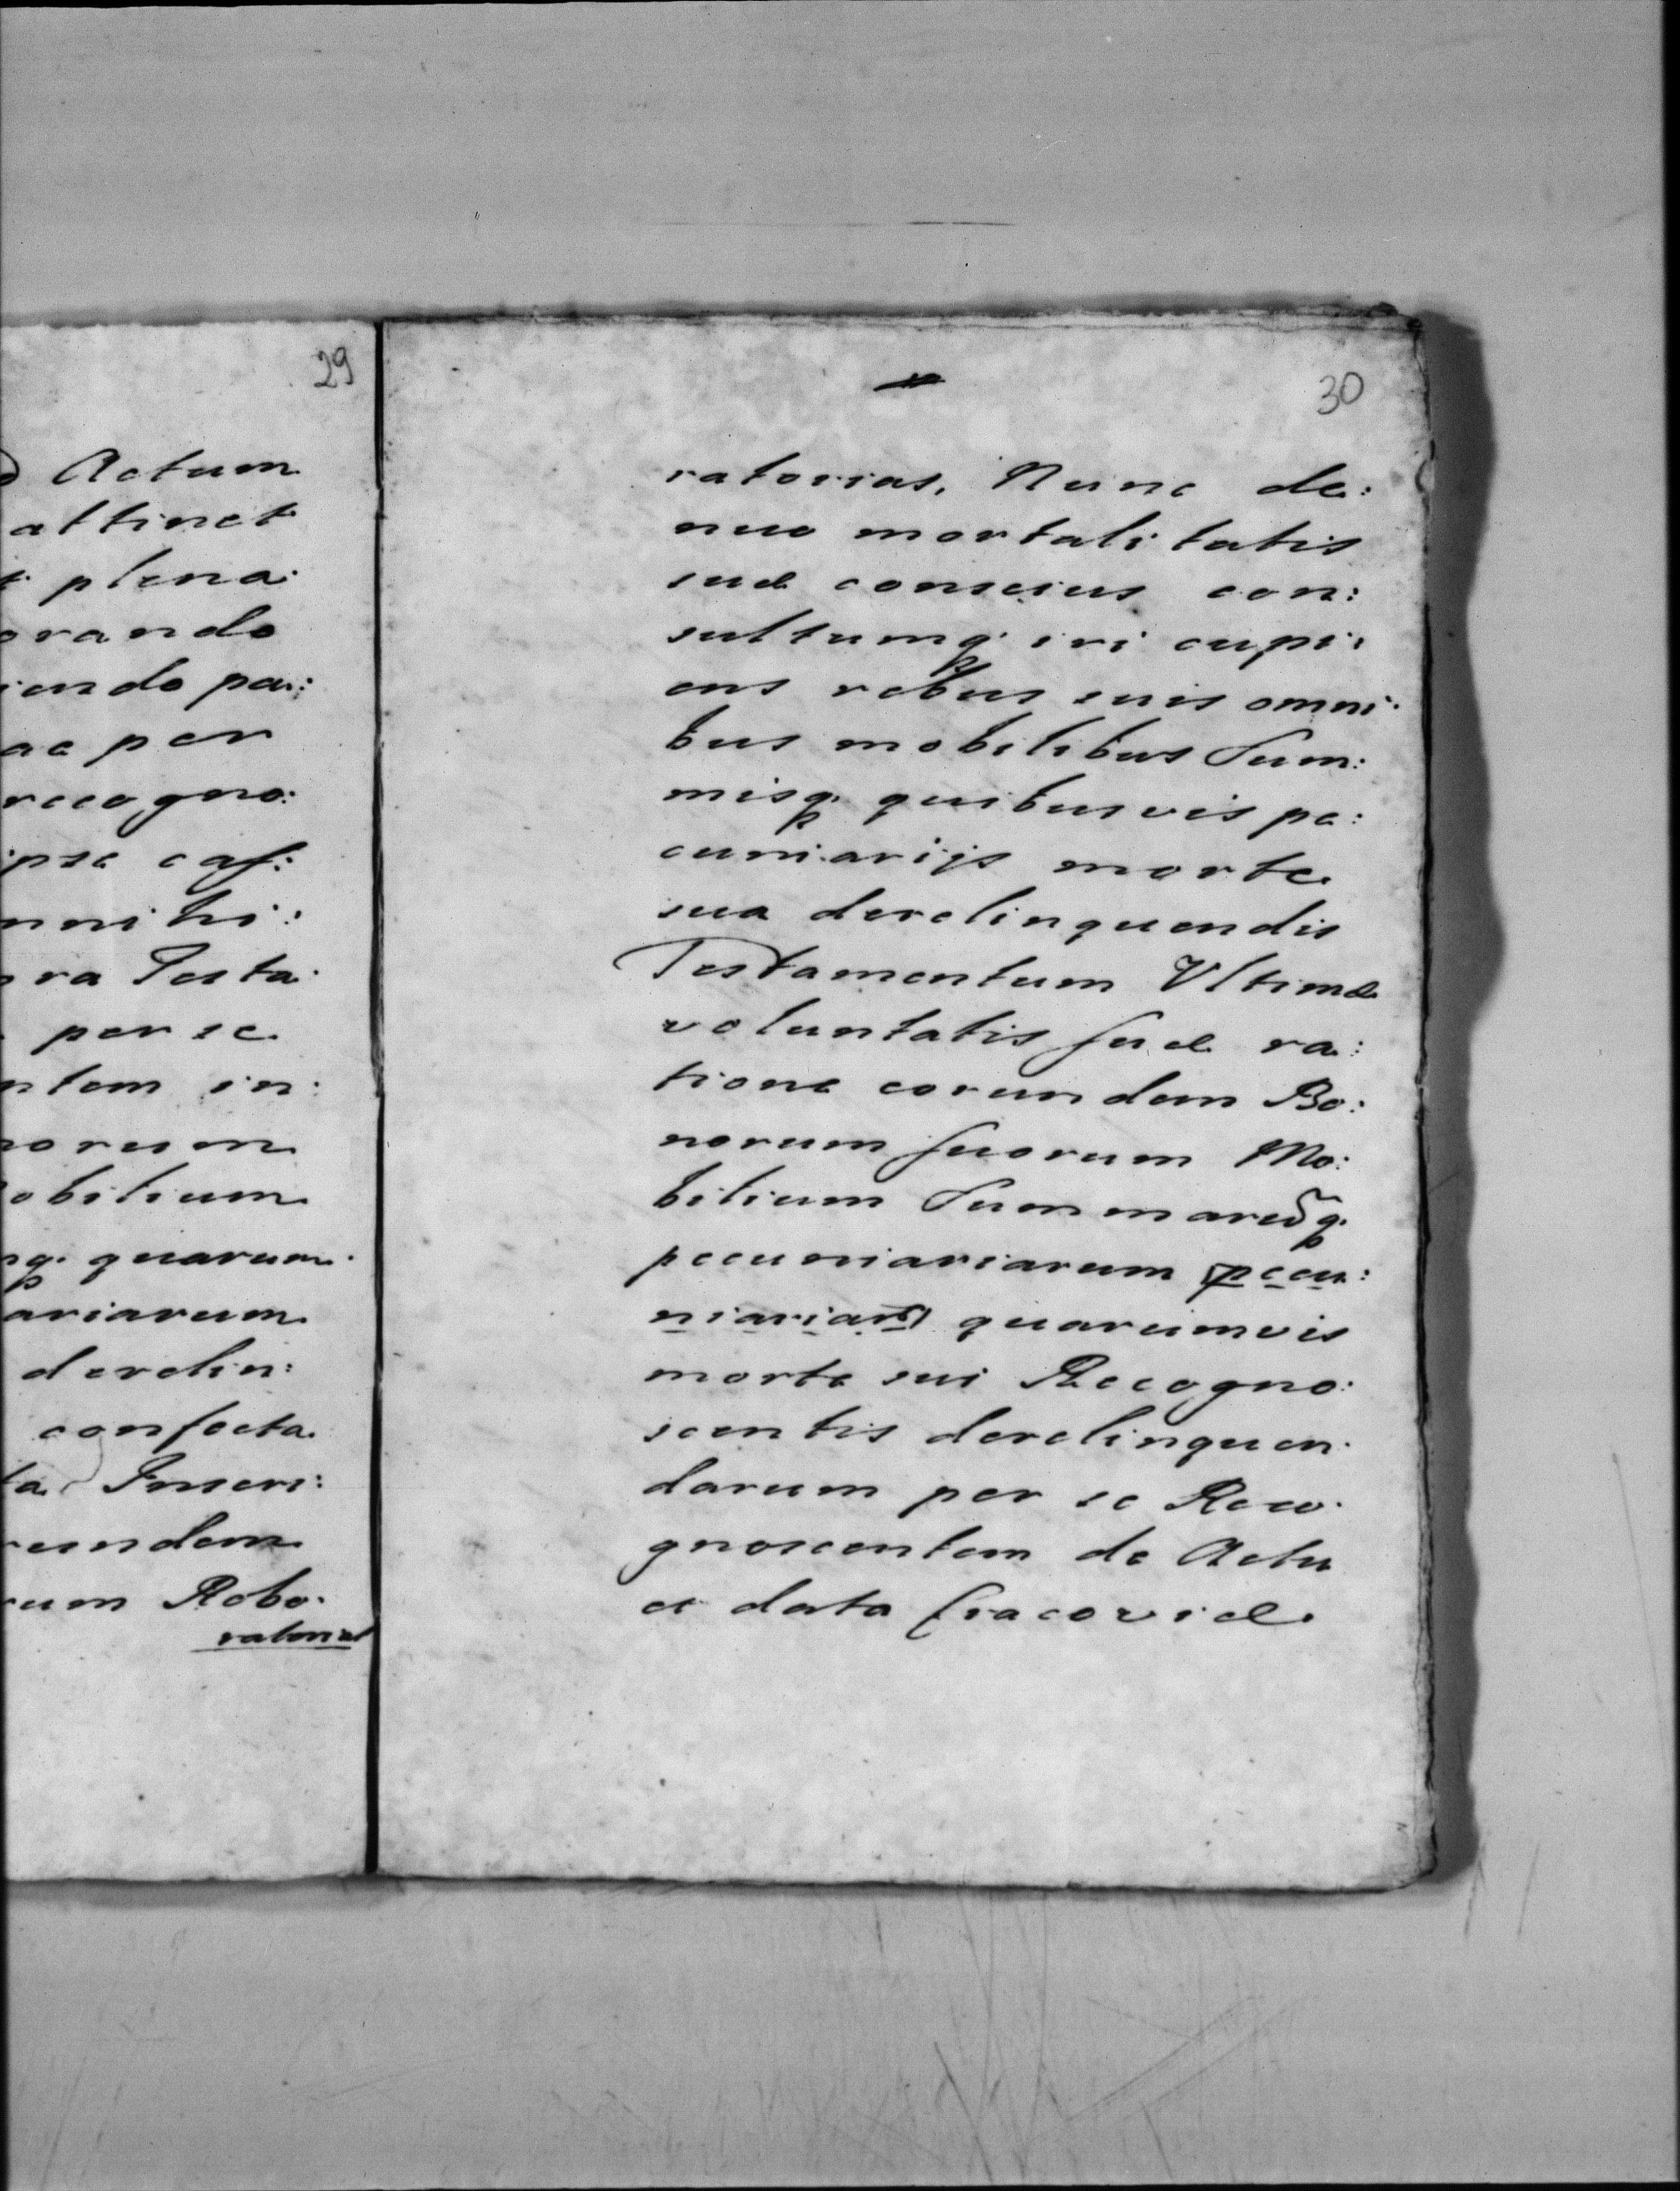 29
Actum
attinet
plena:
orando
iendo pa:
ac per
recogno:
ipse cas:
nnihi:
ra Testa:
per se
ntem in:
norum
obilium
q. quarum:
ariarum
derelin:
confecta
ta Inscri:
eundem
um Robo:
ratorias
30
ratorias, Nunc de:
nuo mortalitatis
suæ conscius con:
sultumq. iri cupi:
ens rebus suis omni:
bus mobilibus Sum:
misq. quibusvis pe:
cuniarijs morte
sua derelinquendis
Testamentum Vltimæ
voluntatis suæ ra:
tione eorundem Bo:
norum suorum Mo:
bilium Summarũq.
pecuniariarum pecu:
niariarũ quarumvis
morte sui Recogno:
scentis derelinquen:
darum per se Reco:
gnoscentem de Actu
et data Cracoviæ